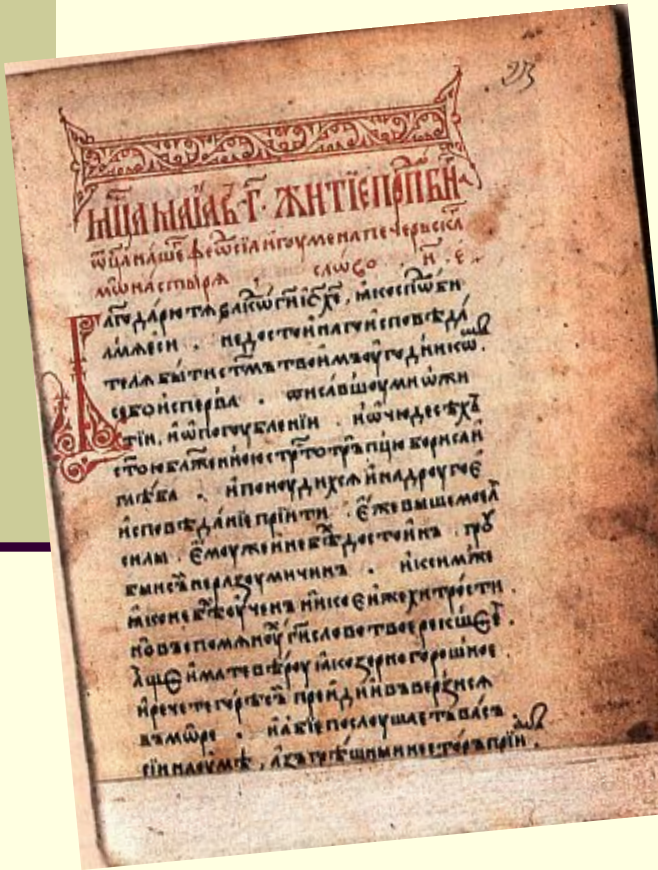 мц҃а маїа въ г҃· житїе прпⷣбнⷢ
ѡц҃а нашеⷢ ѳеѡⷣсїа игоумена печерьскаⷢ
мѡнастырѧ слѡво н҃ . е҃
Благодарю тѧ влⷣко гⷭи іс҃ хе҃, ꙗко сподоби
лъ мѧ еси . недостойнаго исповѣда
телѧ быти ст҃мъ твоимъ оугодникѡмъ .
се бо исперва . списавшоу ми ѡ жи
тїи, и ѡ погоублении . и ѡ чюдесѣхъ
ст҃ою блаженною стрⷭтотръпцю бориса и
глѣба . и поноудихсѧ и на дроугое
исповѣданїе прїити . еже выше моеѧ
силы . емоуже и не бѣⷯ достоинъ . гроу
бы и неразоумиченъ . и к симже
ꙗко не бѣⷯ оученъ никоеиже хитрости .
но въспомѧноуⷯ гⷭи слово твое рекшее .
аще имате вѣроу ꙗко зерно горошное .
и речете горѣ сеи преиди и въверзисѧ
въ мѡре . и абїе послоушаетъ васъ
сїи на оумѣ , азъ грѣшныи несторъ прїи